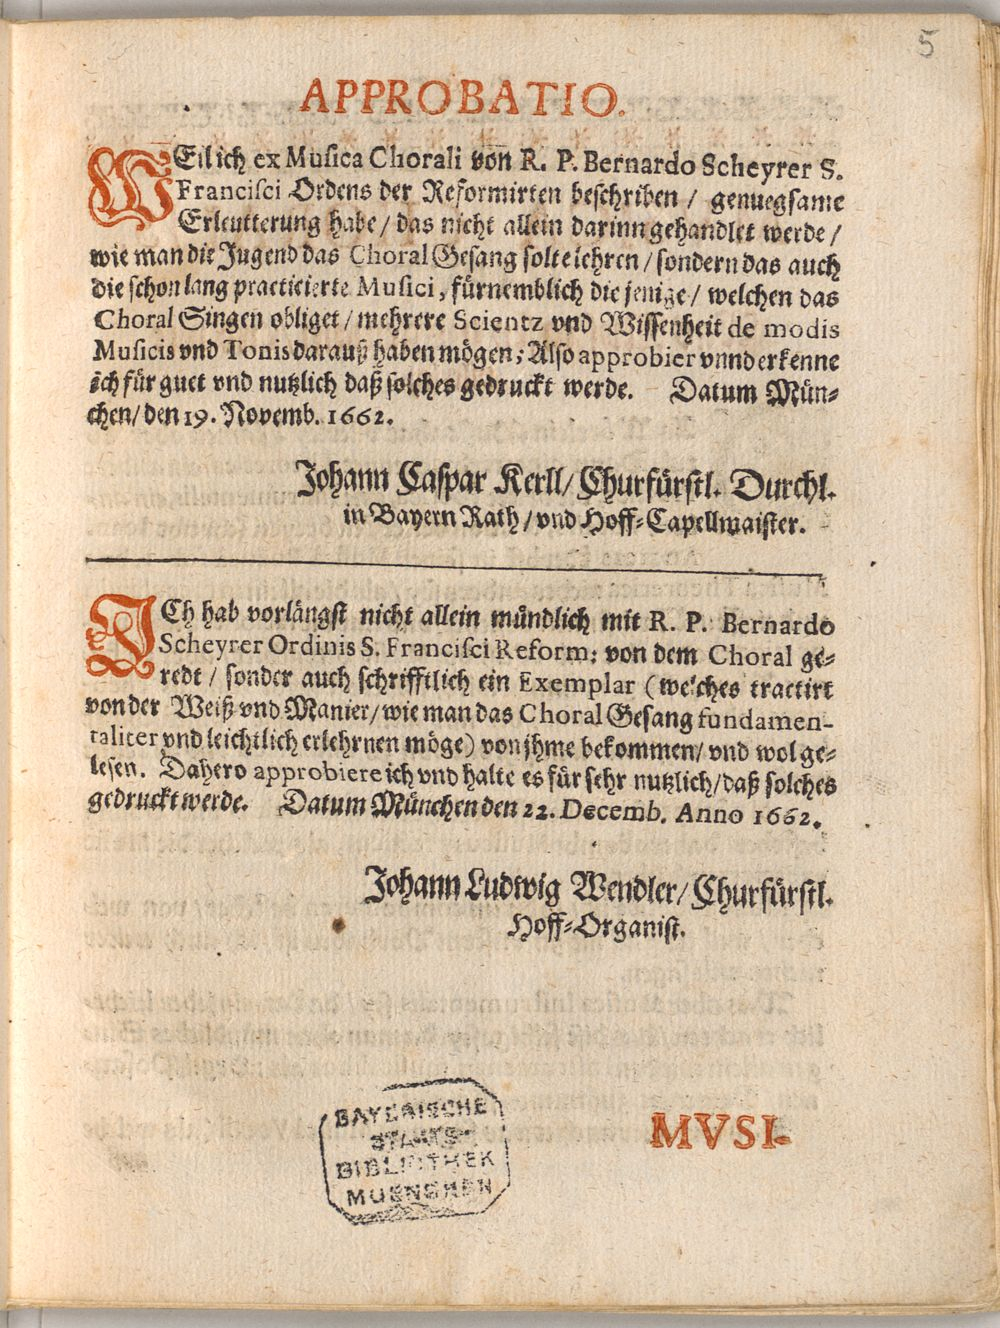 5
APPROBATIO.
WEil ich ex Musica Chorali von R. P. Bernardo Scheyrer S.
Francisci Ordens der Reformirten beschriben / genuegsame
Erleutterung habe / das nicht allein darinn gehandlet werde /
wie man die Jugend das Choral Gesang solte lehren / sondern das auch
die schon lang practicierte Musici, fürnemblich die jenige / welchen das
Choral Singen obliget / mehrere Scientz vnd Wissenheit de modis
Musicis vnd Tonis darauß haben mögen; Also approbier vnnd erkenne
ich für guet vnd nutzlich daß solches gedruckt werde. Datum Mün-
chen / den 19. Novemb. 1662.
Johann Caspar Kerll / Churfürstl. Durchl.
in Bayern Rath / vnd Hoff-Capellmaister.
ICh hab vorlängst nicht allein mündlich mit R. P. Bernardo
Scheyrer Ordinis S. Francisci Reform: von dem Choral ge-
redt / sonder auch schrifftlich ein Exemplar (welches tractirt
von der Weiß vnd Manier / wie man das Choral Gesang fundamen-
taliter vnd leichtlich erlehrnen möge) von jhme bekommen / vnd wol ge-
lesen. Dahero approbiere ich vnd halte es für sehr nutzlich / daß solches
gedruckt werde. Datum München den 22. Decemb. Anno 1662.
Johann Ludwig Wendler / Churfürstl.
Hoff-Organist.
MVSI-
BAYERISCHE
STAATS-
BIBLIOTHEK
MUENCHEN